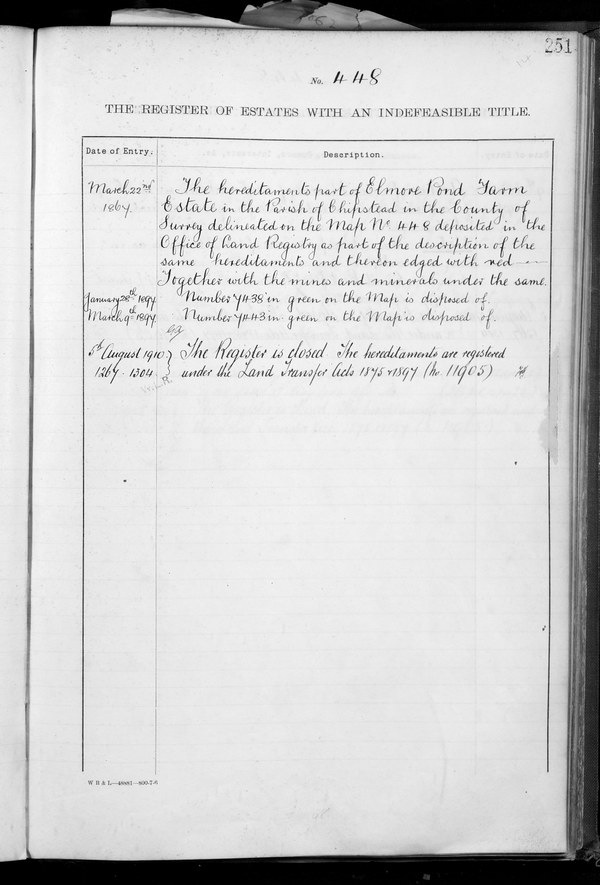 251
No. 448
THE REGISTER OF ESTATES WITH AN INDEFEASIBLE TITLE.
Date of Entry.
Description.
March 22nd 1867. The hereditaments part of Elmore Pond Farm
Estate in the Parish of Chipstead in the County of
Surrey delineated on the Map No 448 deposited in the
Office of Land Registry as part of the description of the
same hereditaments and thereon edged with red
Together with the mines and minerals under the same.
January 28th 1897. Number 7438 in green on the Map is disposed of.
March 9th 1897 Number 7443 in green on the Map is disposed of.
5th August 1910 The Register is closed The hereditaments are registered
1267-1304 under the Land Transfer Acts 1875 & 1897 (No. 11905)
W B & L—48881—800-7-6